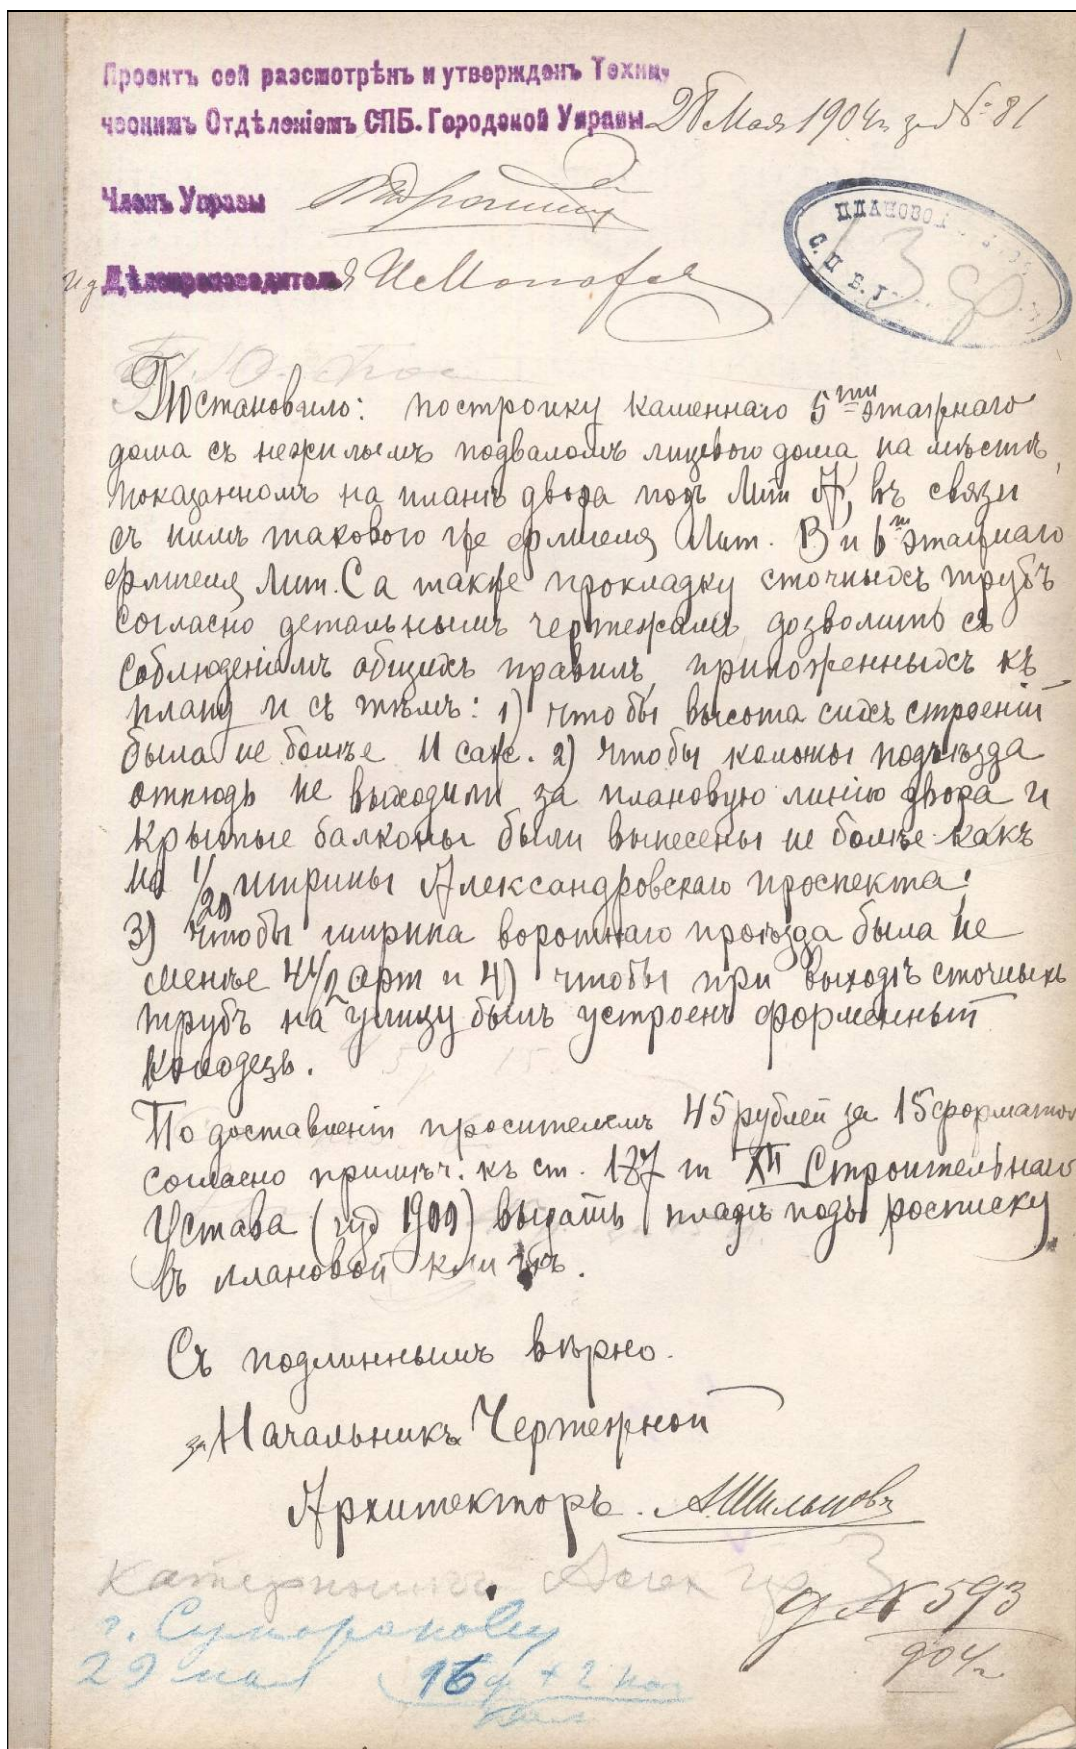 1
Проектъ сей разсмотрѣнъ и утвержденъ Техни-
ческимъ Отдѣленіемъ СПБ. Городской Управы 28 Мая 1904 г за № 81
Членъ Управы
ПЛАНОВОЙ
С. П. Б. Г
и д Дѣлопроизводителя
Постановило: постройку каменнаго 5ти этажнаго
дома съ нежилымъ подваломъ лицевого дома, на мѣстѣ,
показанномъ на планѣ двора подъ Лит А, въ связи
съ нимъ такового же флигеля Лит. В и 6ти этажнаго
флигеля Лит. С а также прокладку сточныхъ трубъ
согласно детальнымъ чертежамъ, дозволить съ
соблюденіемъ общихъ правилъ, приложенныхъ къ
плану и съ тѣмъ: 1) чтобы высота сихъ строеній
была не болѣе 11 саж. 2) чтобы колоны подъѣзда
отнюдь не выходили за плановую линію двора и
крытые балконы были вынесены не болѣе какъ
на 1/20 ширины Александровскаго проспекта;
3) чтобы ширина воротнаго проѣзда была не
менѣе 4 1/2 арш и 4) чтобы при выходѣ сточныхъ
трубъ на улицу былъ устроенъ форменный
колодезь.
По доставленіи просителемъ 45 рублей за 15 форматовъ
согласно примѣч. къ ст. 187 т XII Строительнаго
Устава (изд 1900) выдать планъ подъ росписку
въ плановой книгѣ.
Съ подлиннымъ вѣрно.
за Начальникъ Чертежной
Архитекторъ.
д № 593
904 г
29 мая 16 ф + 2